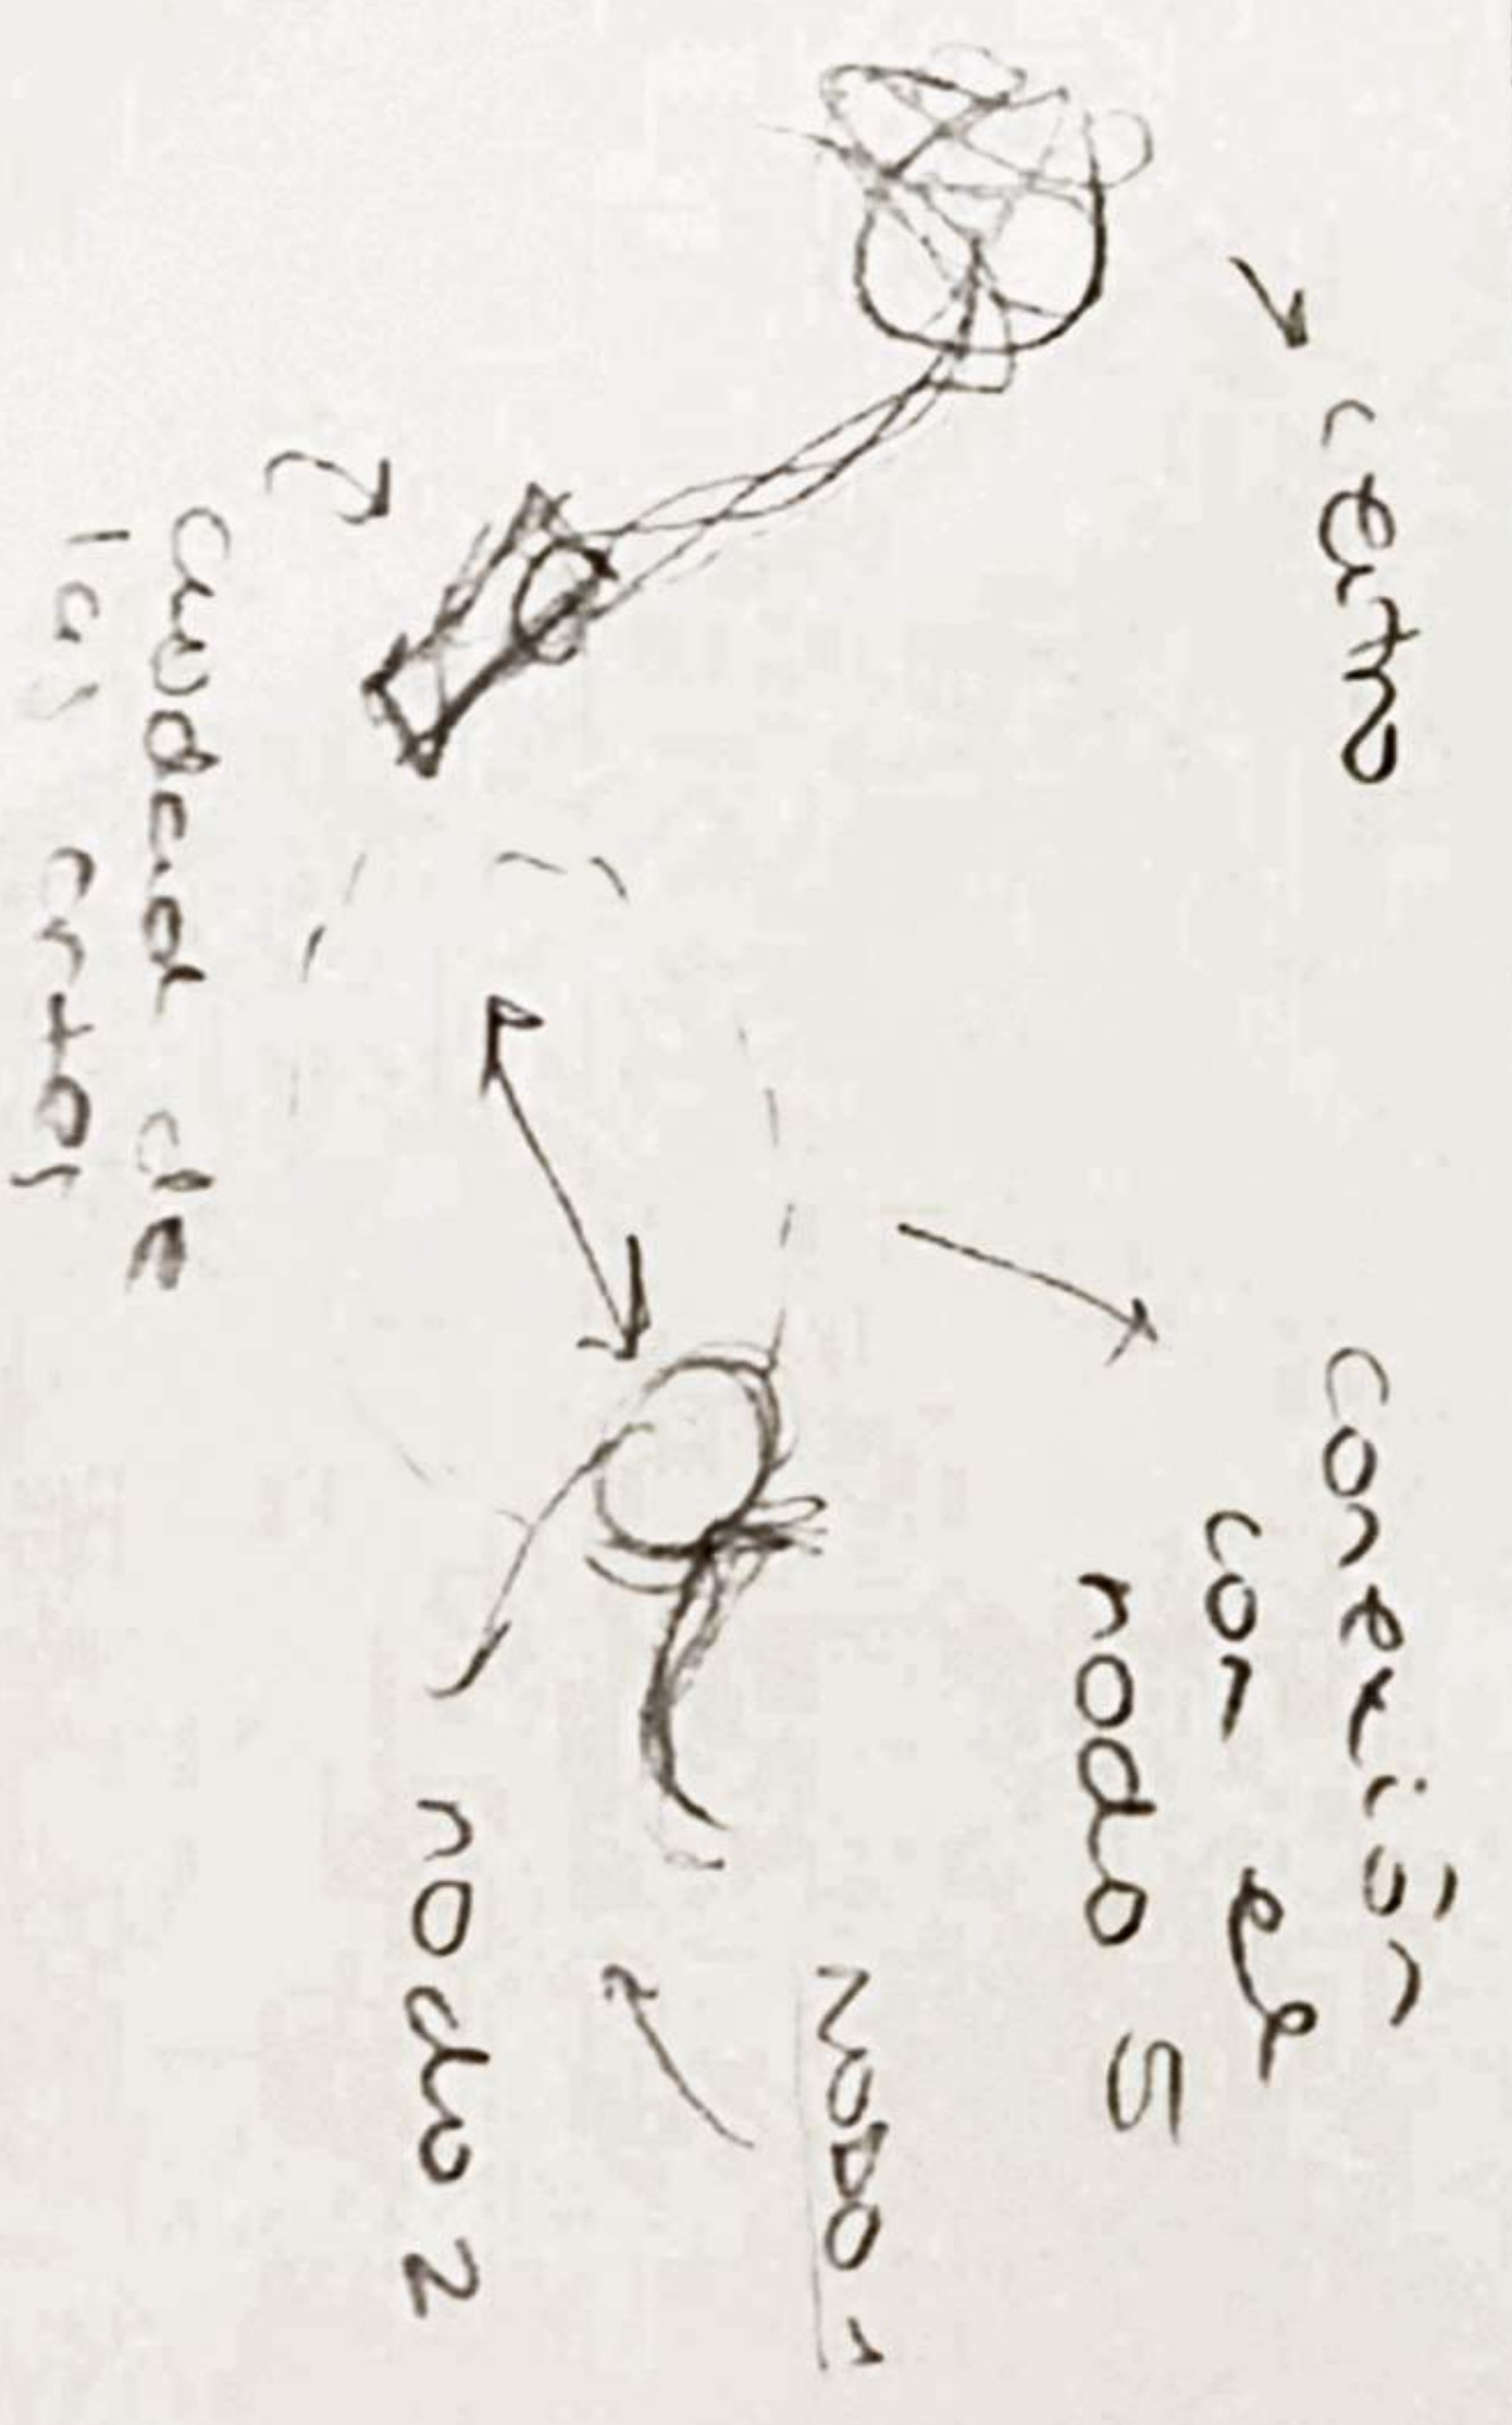 centro
conexión
con el
nodo 5
NODO 1
nodo 2
ciudad de
las artes